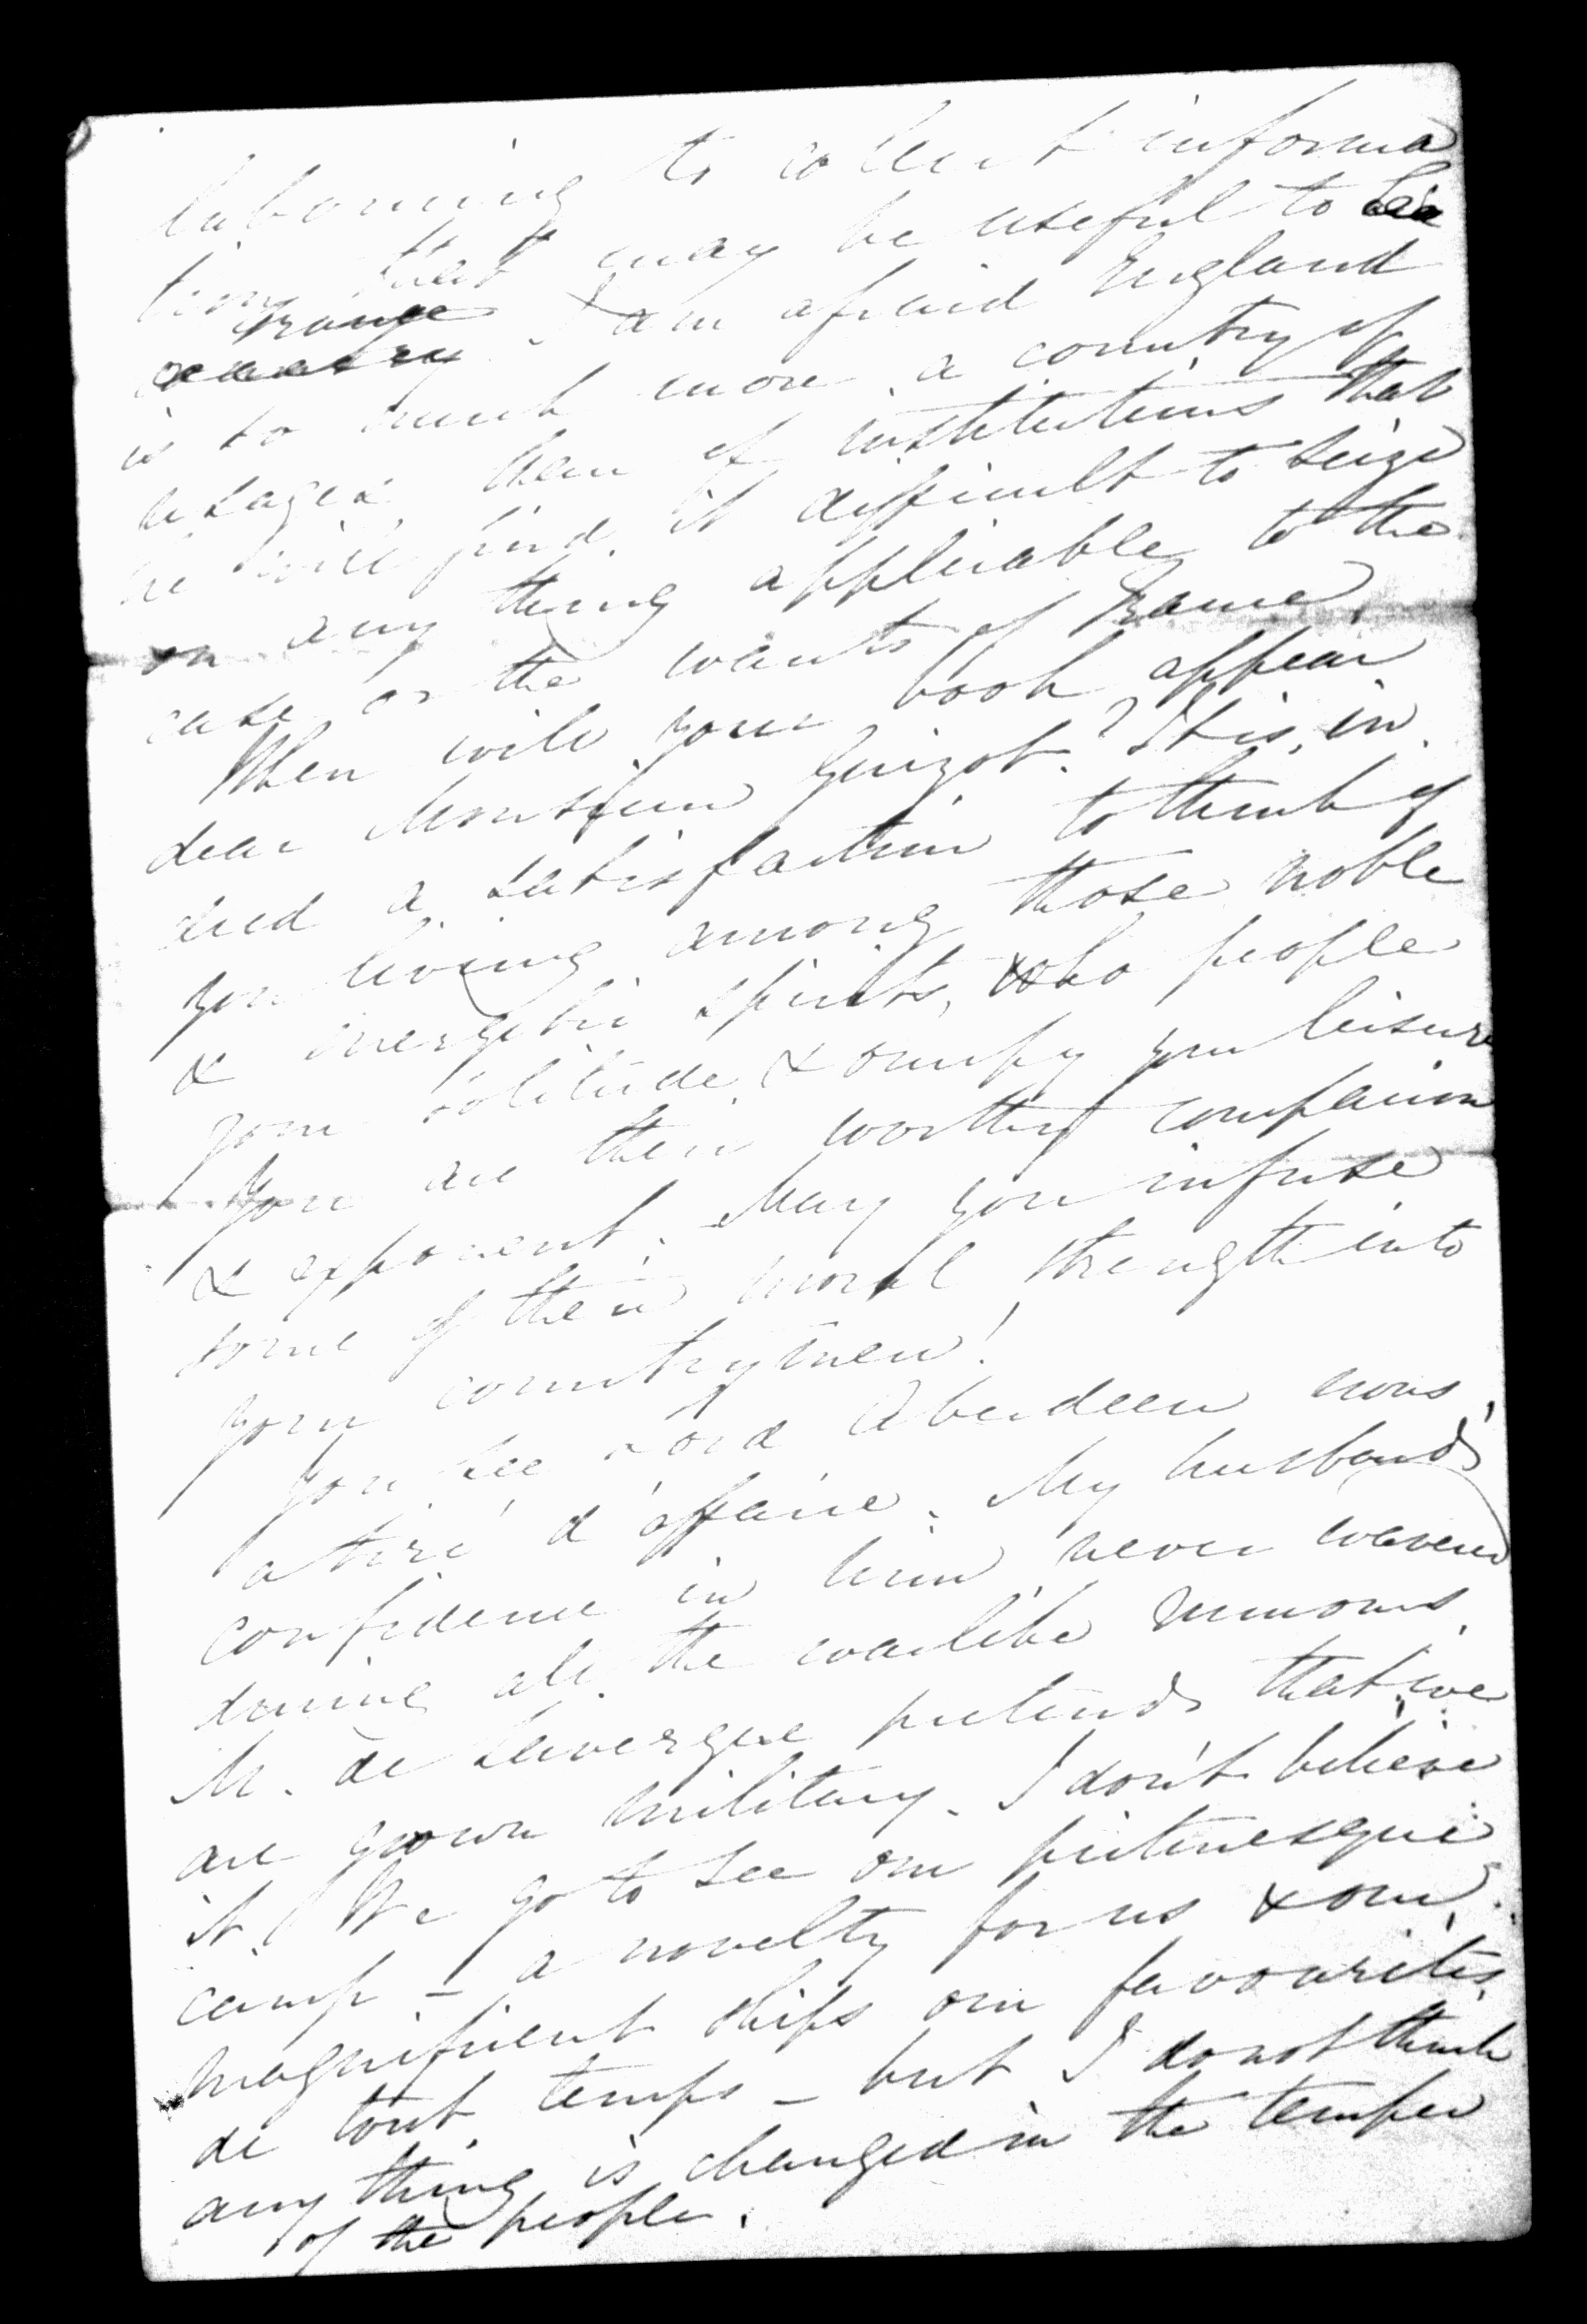 labouring to collect informa
tion that may be useful to
France. I am afraid England
is so much more a country of
usages than of institutions that
he will find it difficult to seize
on any thing applicable to the
case or the wants of France.
When will your book appear
dear Monsieur Guizot? It is in
deed a satisfaction to think of
you living among those noble
& energetic spirits, who people
your solitude & occupy your leisure
You are their worthy companion
& exponent. May you infuse
some of their moral strength into
your countrymen!
You see Lord Aberdeen nous
a tiré d'affaire. My husband's
confidence in him never wavered
during all the warlike rumours.
M. de Lavergne pretends that we
are grown military. I don't believe
it. We go to see our picturesque
camp – a novelty for us & our
magnificent ships our favourites
de tout temps – but I do not think
any thing is changed in the temper
of the people.